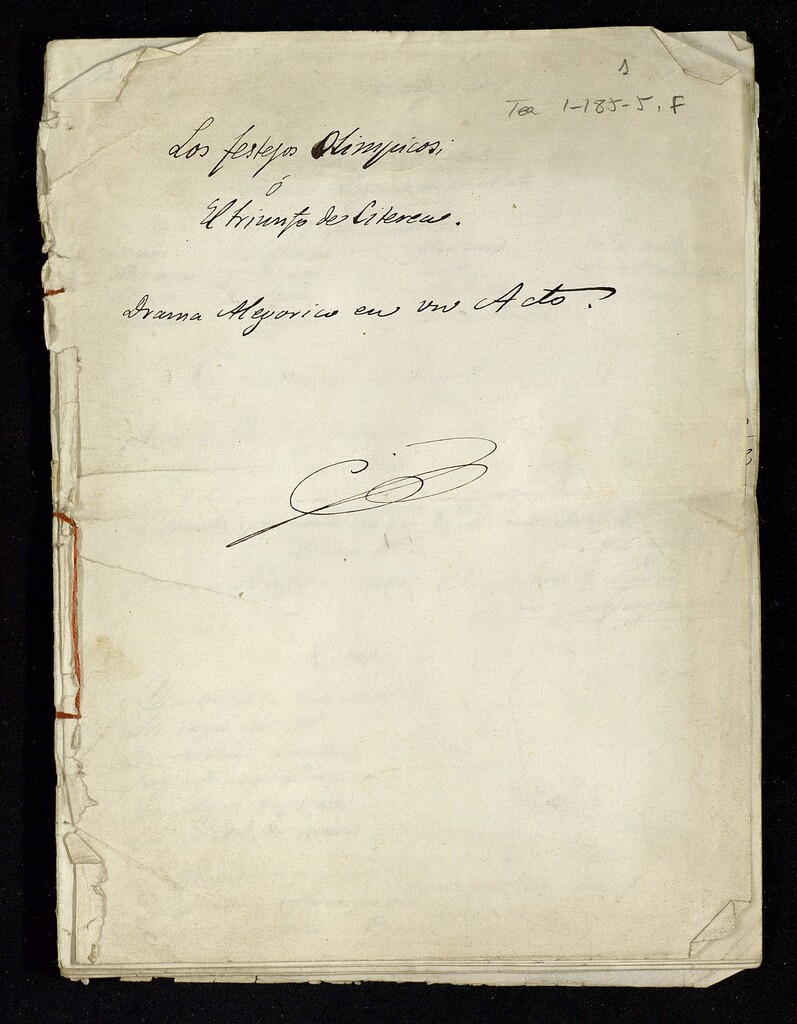 1
Tea 1-185-5, F
Los festejos Olimpicos;
ó
El triunfo de Citerea.
Drama Alegorico en un Acto.